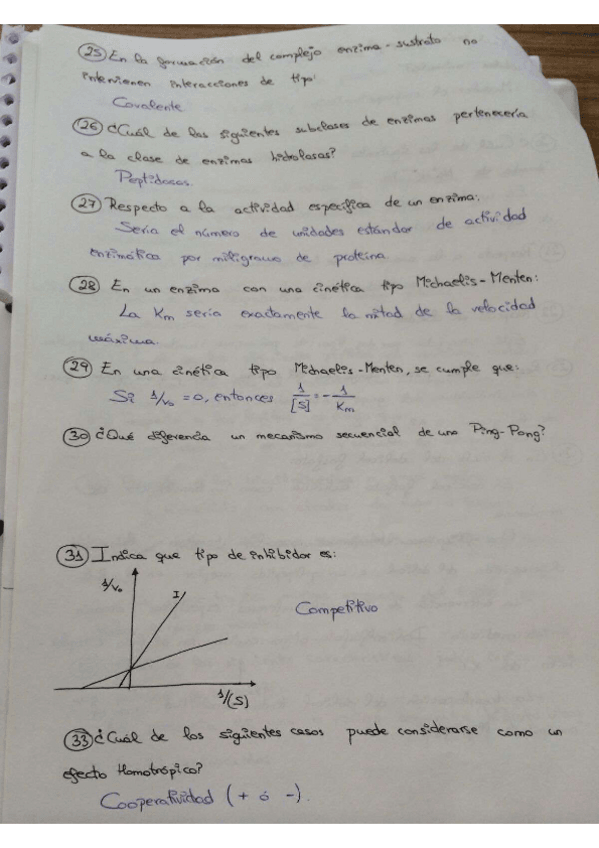 25 En la formación del complejo enzima-sustrato no
intervienen interacciones de tipo:
Covalente
26 ¿Cuál de las siguientes subclases de enzimas pertenecería
a la clase de enzimas hidrolasas?
Peptidasas.
27 Respecto a la actividad específica de un enzima:
Sería el número de unidades estándar de actividad
enzimática por miligramo de proteína
28 En un enzima con una cinética tipo Michaelis-Menten:
La Km sería exactamente la mitad de la velocidad
máxima.
29 En una cinética tipo Michaelis-Menten, se cumple que:
Si 1/V₀ = 0, entonces 1/[S] = - 1/Km
30 ¿Qué diferencia un mecanismo secuencial de uno Ping-Pong?
31 Indica que tipo de inhibidor es:
1/V₀
I
Competitivo
1/(S)
33 ¿Cuál de los siguientes casos puede considerarse como un
efecto Homotrópico?
Cooperatividad (+ ó -).